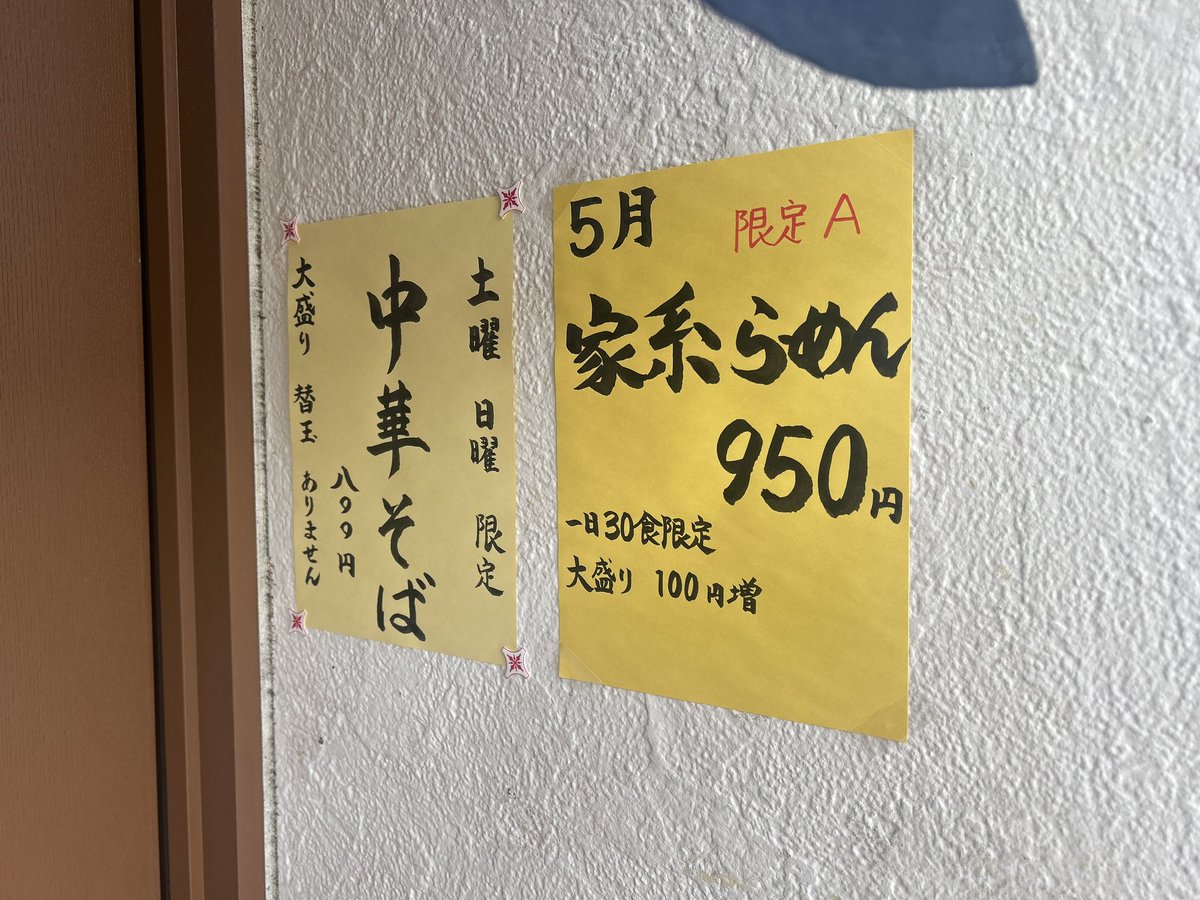 5月
限定A
家系らーめん
950円
一日30食限定
大盛り 100円増
土曜 日曜 限定
中華そば
八99円
大盛り 替玉 ありません